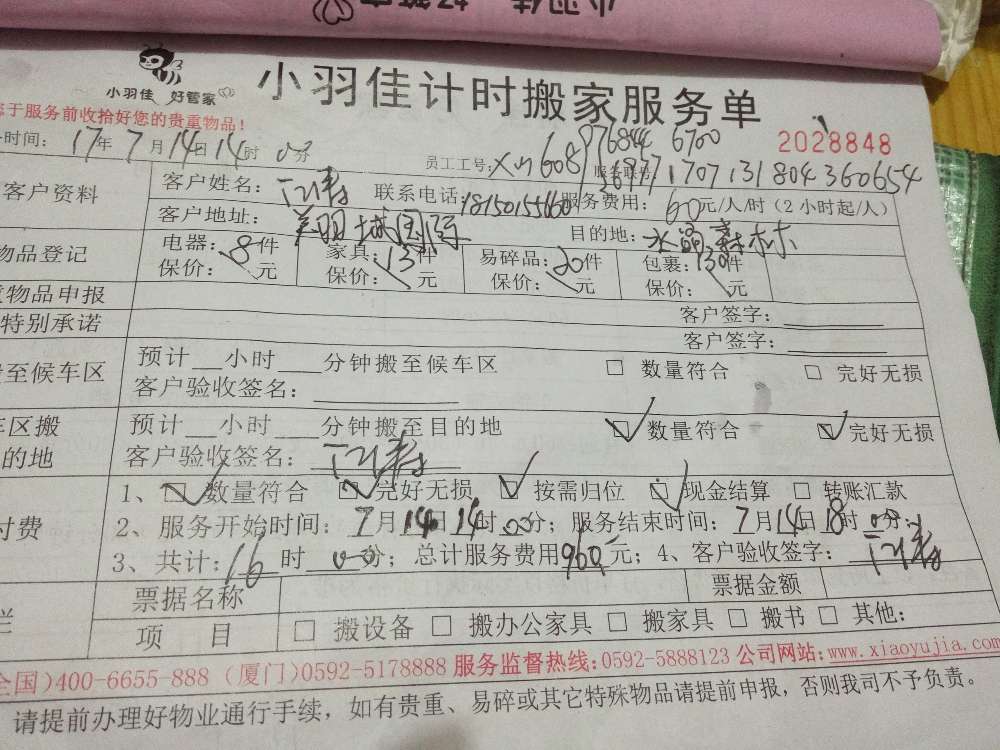 小羽佳 好管家
小羽佳计时搬家服务单
于服务前收拾好您的贵重物品!
时间: 17年 7月 14日 14时 00分
员工工号: 608 976844 6700
2028848
客户资料 客户姓名: 联系电话: 18150155160 服务费用: 60元/人/时 (2小时起/人)
客户地址: 目的地: 水晶森林
物品登记 电器: 8件 家具: 13件 易碎品: 20件 包裹: 130件
保价: 元 保价: 元 保价: 元 保价: 元
物品申报 客户签字:
特别承诺 客户签字:
至候车区 预计__小时____分钟搬至候车区 □ 数量符合 □ 完好无损
客户验收签名:
区搬 预计__小时____分钟搬至目的地 ☑ 数量符合 ☑ 完好无损
的地 客户验收签名:
1、☑ 数量符合 ☑ 完好无损 ☑ 按需归位 ☑ 现金结算 □ 转账汇款
付费 2、服务开始时间: 7月14日14时00分; 服务结束时间: 7月14日18时00分;
3、共计: 16时 00分; 总计服务费用960元; 4、客户验收签字:
栏 票据名称 票据金额
项 目 □ 搬设备 □ 搬办公家具 □ 搬家具 □ 搬书 □ 其他:
全国)400-6655-888 (厦门)0592-5178888 服务监督热线:0592-5888123 公司网站:www.xiaoyujia.com
请提前办理好物业通行手续, 如有贵重、易碎或其它特殊物品请提前申报, 否则我司不予负责。